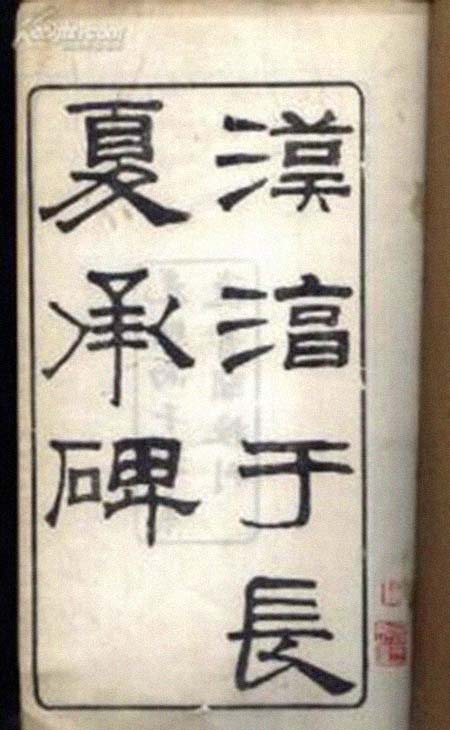 漢淳于長
夏承碑